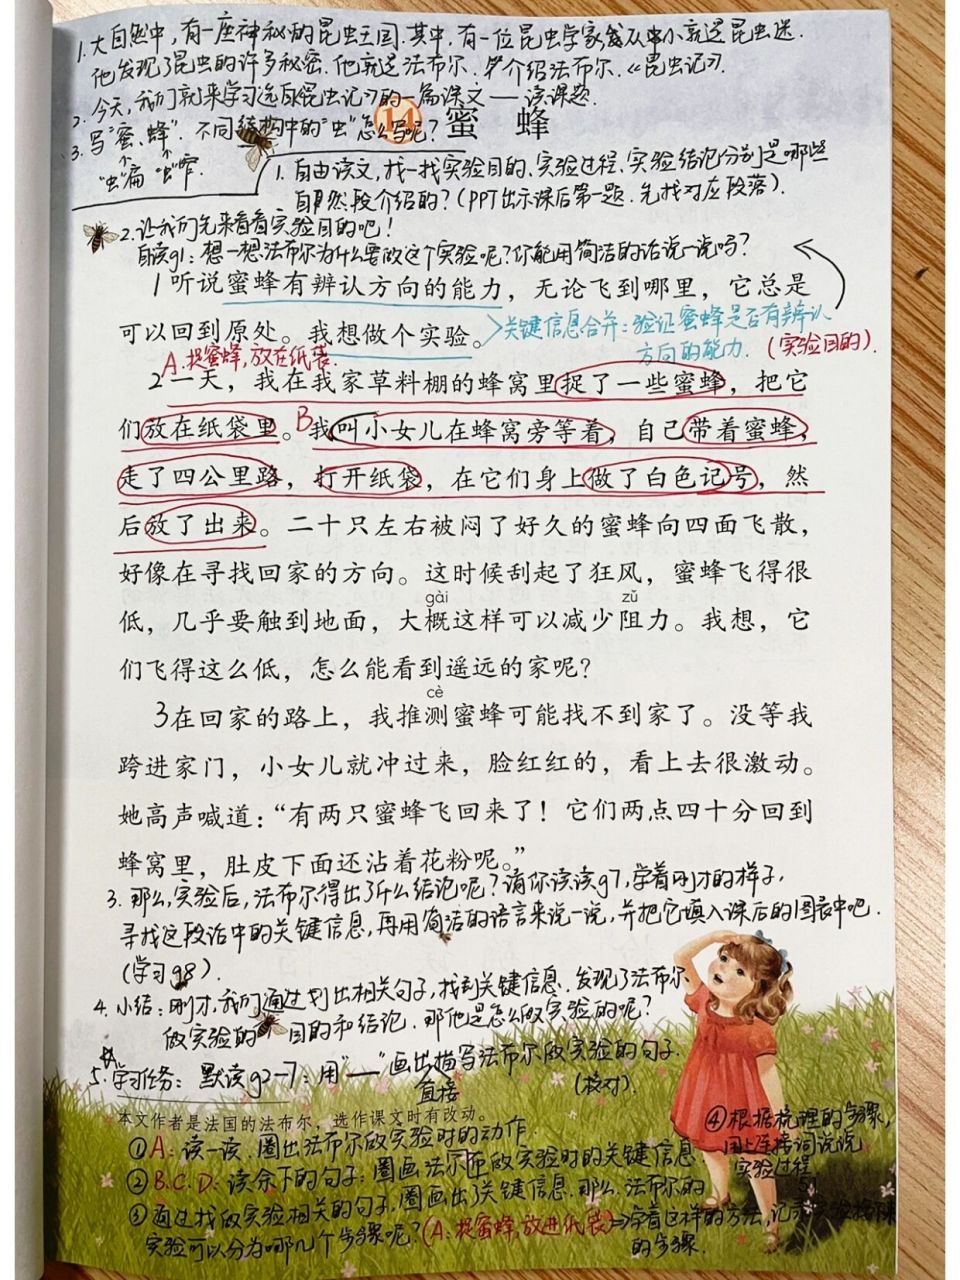 1. 大自然中,有一座神秘的昆虫王国.其中,有一位昆虫学家从小就是昆虫迷.
他发现了昆虫的许多秘密.他就是法布尔.介绍法布尔.《昆虫记》.
2. 今天,我们就来学习选自《昆虫记》的一篇课文——读课题.
14 蜜 蜂
3. 写"蜜、蜂".不同结构中的"虫"怎么写呢?
"虫"扁 "虫"窄.
1. 自由读文,找一找实验目的、实验过程、实验结论分别是哪些
自然段介绍的?(PPT出示课后第一题.先找对应段落).
2.让我们先来看看实验目的吧!
自读g1:想一想法布尔为什么要做这个实验呢?你能用简洁的话说一说吗?
1听说蜜蜂有辨认方向的能力,无论飞到哪里,它总是
可以回到原处。我想做个实验。
关键信息合并:验证蜜蜂是否有辨认
方向的能力.(实验目的).
A.捉蜜蜂,放在纸袋.
2一天,我在我家草料棚的蜂窝里捉了一些蜜蜂,把它
们放在纸袋里。B我叫小女儿在蜂窝旁等着,自己带着蜜蜂,
走了四公里路,打开纸袋,在它们身上做了白色记号,然
后放了出来。二十只左右被闷了好久的蜜蜂向四面飞散,
好像在寻找回家的方向。这时候刮起了狂风,蜜蜂飞得很
gài zǔ
低,几乎要触到地面,大概这样可以减少阻力。我想,它
们飞得这么低,怎么能看到遥远的家呢?
cè
3在回家的路上,我推测蜜蜂可能找不到家了。没等我
跨进家门,小女儿就冲过来,脸红红的,看上去很激动。
她高声喊道:“有两只蜜蜂飞回来了!它们两点四十分回到
蜂窝里,肚皮下面还沾着花粉呢。”
3. 那么,实验后,法布尔得出了什么结论呢?请你读读g7,学着刚才的样子,
寻找这段话中的关键信息,再用简洁的语言来说一说,并把它填入课后的图表中吧.
(学习g8).
4. 小结:刚才,我们通过划出相关句子,找到关键信息.发现了法布尔
做实验的目的和结论.那他是怎么做实验的呢?
5. 学习任务:默读g2—7:用"——"画出描写法布尔做实验的句子.
直接 (核对)
本文作者是法国的法布尔,选作课文时有改动。
①A:读一读.圈出法布尔做实验时的动作.
②B.C.D:读余下的句子:圈画法布尔做实验时的关键信息.
③通过找做实验相关的句子,圈画出了关键信息.那么.法布尔的
实验可以分为哪几个步骤呢?(A:捉蜜蜂,放进纸袋)⇒学着这样的方法,记录
的步骤.
④根据梳理的步骤,
用上连接词说说
实验过程
51